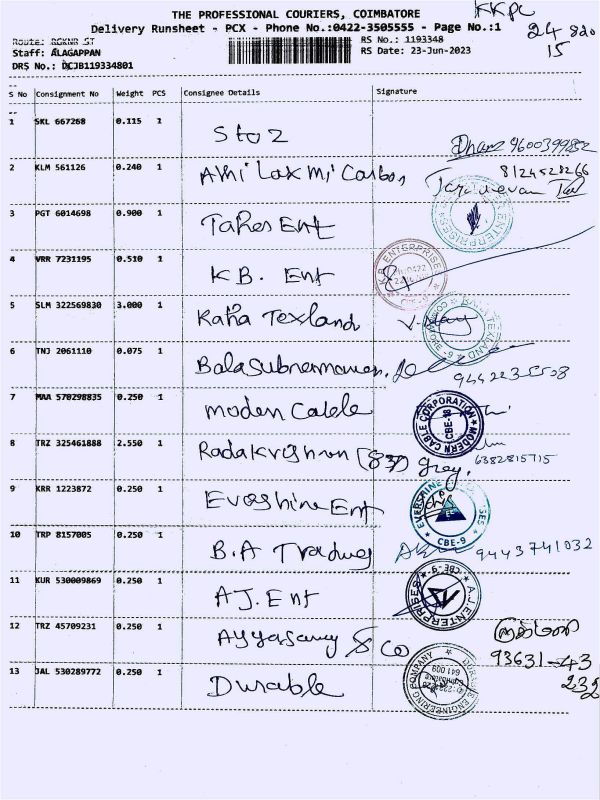 THE PROFESSIONAL COURIERS, COIMBATORE
KKPC
Delivery Runsheet - PCX - Phone No.:0422-3505555 - Page No.:1
24
15
Route:
RS No.: 1193348
Staff: ALAGAPPAN
RS Date: 23-Jun-2023
DRS No.: DCJB119334801
S No Consignment No Weight PCS Consignee Details Signature
1 SKL 667268 0.115 1 Stoz
2 KLM 561126 0.240 1 8124528266
3 PGT 6014698 0.900 1 Ent
4 VRR 7231195 0.510 1 K.B. Ent
K.B. ENTERPRISE
CBE-9
5 SLM 322569830 3.000 1 Texland
6 TNJ 2061110 0.075 1
7 MAA 570298835 0.250 1 Modern Cable
MODERN CABLE CORPORATION
CBE-18
8 TRZ 325461888 2.550 1 6382815715
9 KRR 1223872 0.250 1 Evershine Ent
EVERSHINE
CBE-9
10 TRP 8157005 0.250 1 B.A Trading 9443741032
11 KUR 530009869 0.250 1 A.J. Ent
A.J. ENTERPRISES
CBE-9
12 TRZ 45709231 0.250 1 Ayyasamy & Co
93631-43
232
13 JAL 530289772 0.250 1 Durable
DURABLE ENGINEERING COMPANY
641 009